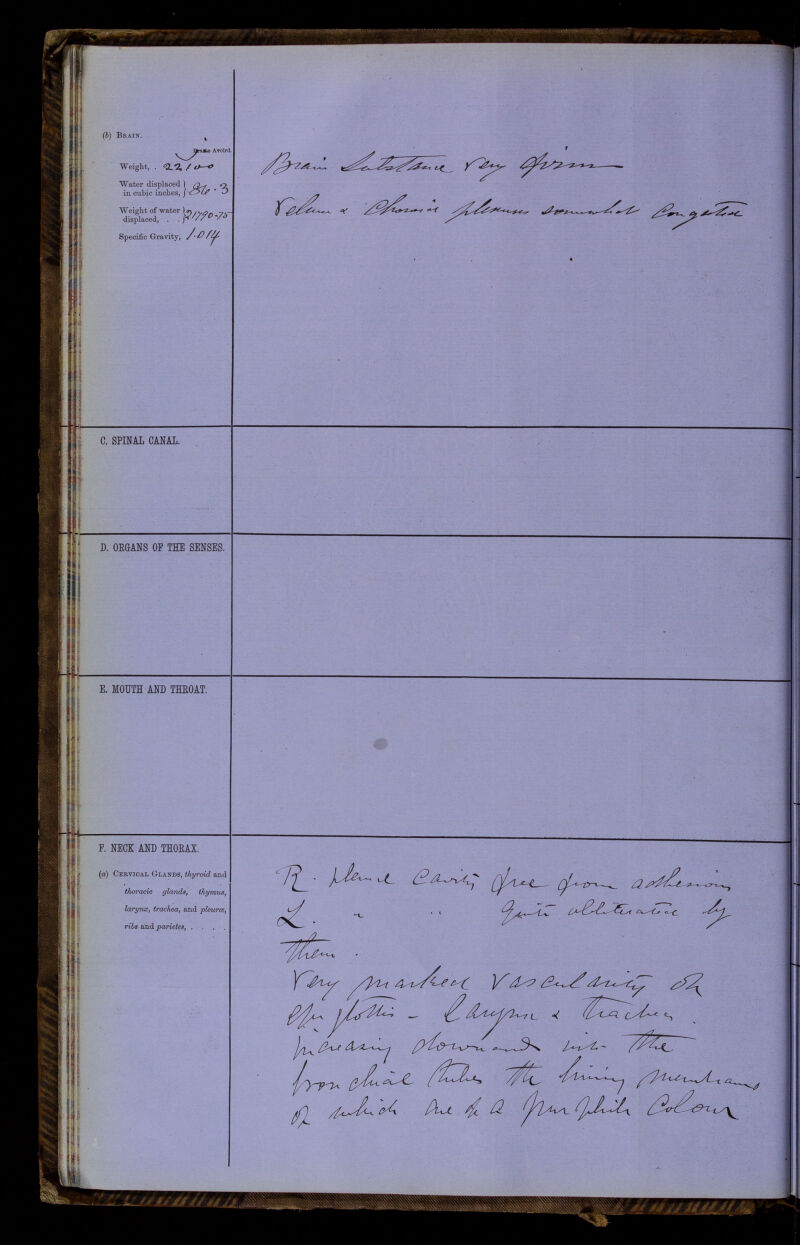 (b) BRAIN.
Avoird.
Weight, . 22100
Water displaced in cubic inches, } 86.3
Weight of water displaced, . . } 21790.75
Specific Gravity, 1.014
Brain Substance very firm
Velum & Choroid plexuses somewhat Congested
C. SPINAL CANAL.
D. ORGANS OF THE SENSES.
E. MOUTH AND THROAT.
F. NECK AND THORAX.
(a) CERVICAL GLANDS, thyroid and
thoracic glands, thymus,
larynx, trachea, and pleuræ,
ribs and parietes, . . . .
R. pleural Cavity free from adhesions
L. " " quite obliterated by
them.
Very marked Vascularity of
epiglottis - Larynx & trachea.
increasing downwards into the
bronchial tubes the lining membranes
of which are of a purplish Colour